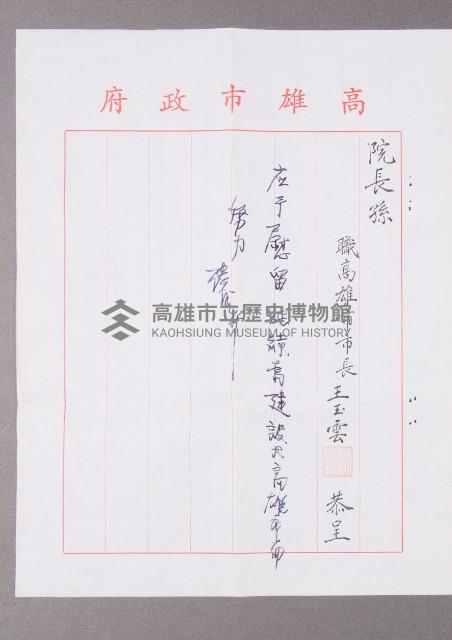 高雄市政府
院長孫
職高雄市市長王玉雲 恭呈
应予慰留 繼續為建設大高雄市而
努力
高雄市立歷史博物館
KAOHSIUNG MUSEUM OF HISTORY